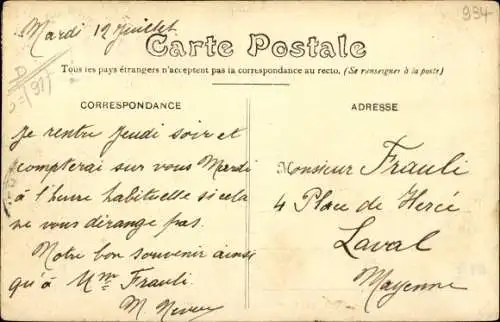 Mardi 12 Juillet
934
Carte Postale
Tous les pays étrangers n'acceptent pas la correspondance au recto. (Se renseigner à la poste)
CORRESPONDANCE
Je rentre Jeudi soir et
compterai sur vous Mardi
à l'heure habituelle si cela
ne vous dérange pas.
Notre bon souvenir ainsi
qu'à Mme Frauli.
M
ADRESSE
Monsieur Frauli
4 Place de Hercé
Laval
Mayenne